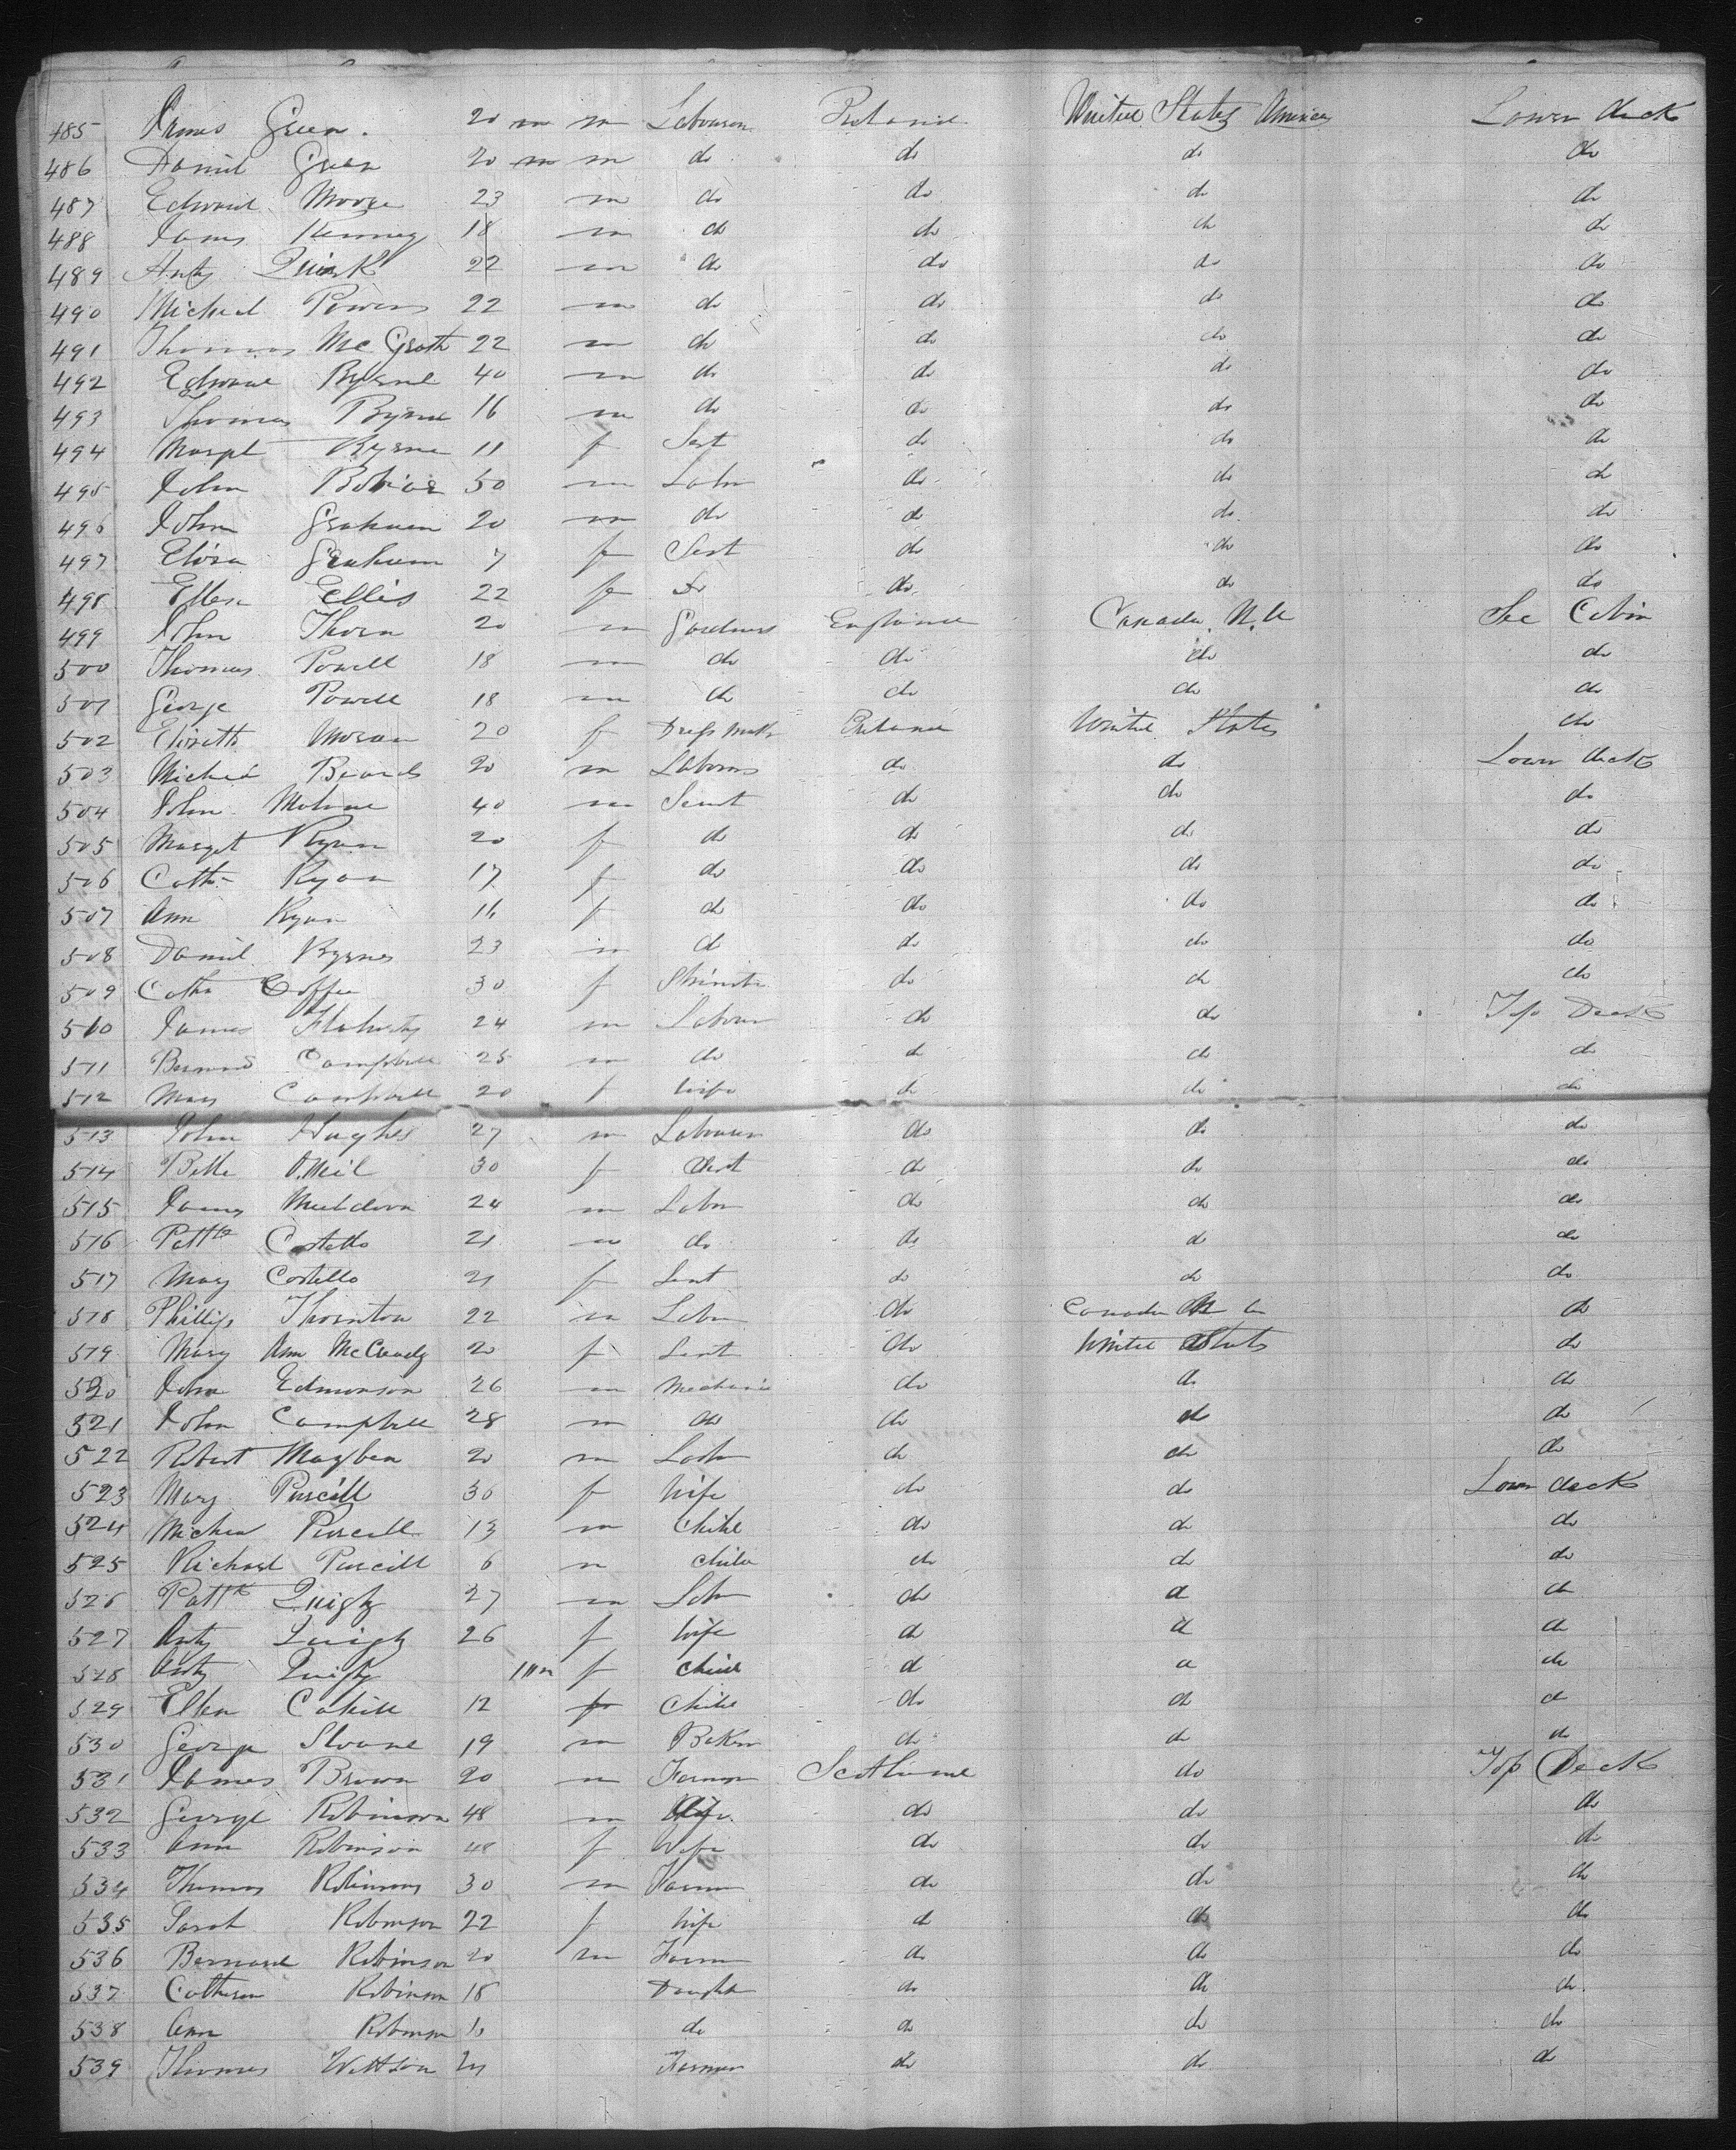 485 James Green. 20 m m Labourer Ireland United States America Lower deck
486 Daniel Green 20 m m do do do do
487 Edward Moore 23 m do do do do
488 James Kenney 18 m do do do do
489 Anty Quirk 22 m do do do do
490 Michael Powers 22 m do do do do
491 Thomas Mc Grath 22 m do do do do
492 Edward Byrne 40 m do do do do
493 Thomas Byrne 16 m do do do do
494 Margt Byrne 11 f Sert do do do
495 John 50 m Labr do do do
496 John Graham 20 m do do do do
497 Eliza Graham 7 f Sert do do do
498 Ellen Ellis 22 f Do do do do
499 John Thorn 20 m Gardners England Canada N.A Sec Cabin
500 Thomas Powell 18 m do do do do
501 George Powell 18 m do do do do
502 Elizath Moran 20 f Dress Makr Ireland United States do
503 Michael 20 m Laborer do do Lower deck
504 John Malone 40 m Servt do do do
505 Marget Ryan 20 f do do do do
506 Cath Ryan 17 f do do do do
507 Ann Ryan 16 f do do do do
508 Daniel Byrnes 23 m do do do do
509 Cath Coffee 30 f do do do
510 James Flaherty 24 m Labour do do Top Deck
511 Bernard Campbell 25 m do do do do
512 Mary Campbell 20 f wife do do do
513 John Hughes 27 m Labourer do do do
514 Bella O.Neil 30 f Sert do do do
515 James Muldoon 24 m Labr do do do
516 Pattk Costello 21 m do do do do
517 Mary Costello 21 f Sert do do do
518 Phillip Thornton 22 m Labr do Canada N A do
519 Mary Ann McCready 20 f Sert do United States do
520 John Edmonson 26 m Mechanic do do do
521 John Campbell 28 m do do do do
522 Robert Mayben 20 m Labr do do do
523 Mary Purcell 30 f wife do do Lower deck
524 Michael Purcell 13 m Child do do do
525 Richard Purcell 6 m child do do do
526 Pattk Quigly 27 m Labr do do do
527 Anty Quigly 26 f wife do do do
528 Anty Quigly 11m f child do do do
529 Ellen Cahill 12 f Child do do do
530 George Sloane 19 m Baker do do do
531 James Brown 20 m Farmer Scotland do Top Deck
532 George Robinson 48 m do do do
533 Ann Robinson 48 f Wife do do do
534 Thomas Robinson 30 m Farmer do do do
535 Sarah Robinson 22 f wife do do do
536 Bernard Robinson 20 m Farmer do do do
537 Catherine Robinson 18 Daughter do do do
538 Ann Robinson do do do do
539 Thomas Wattson Farmer do do do